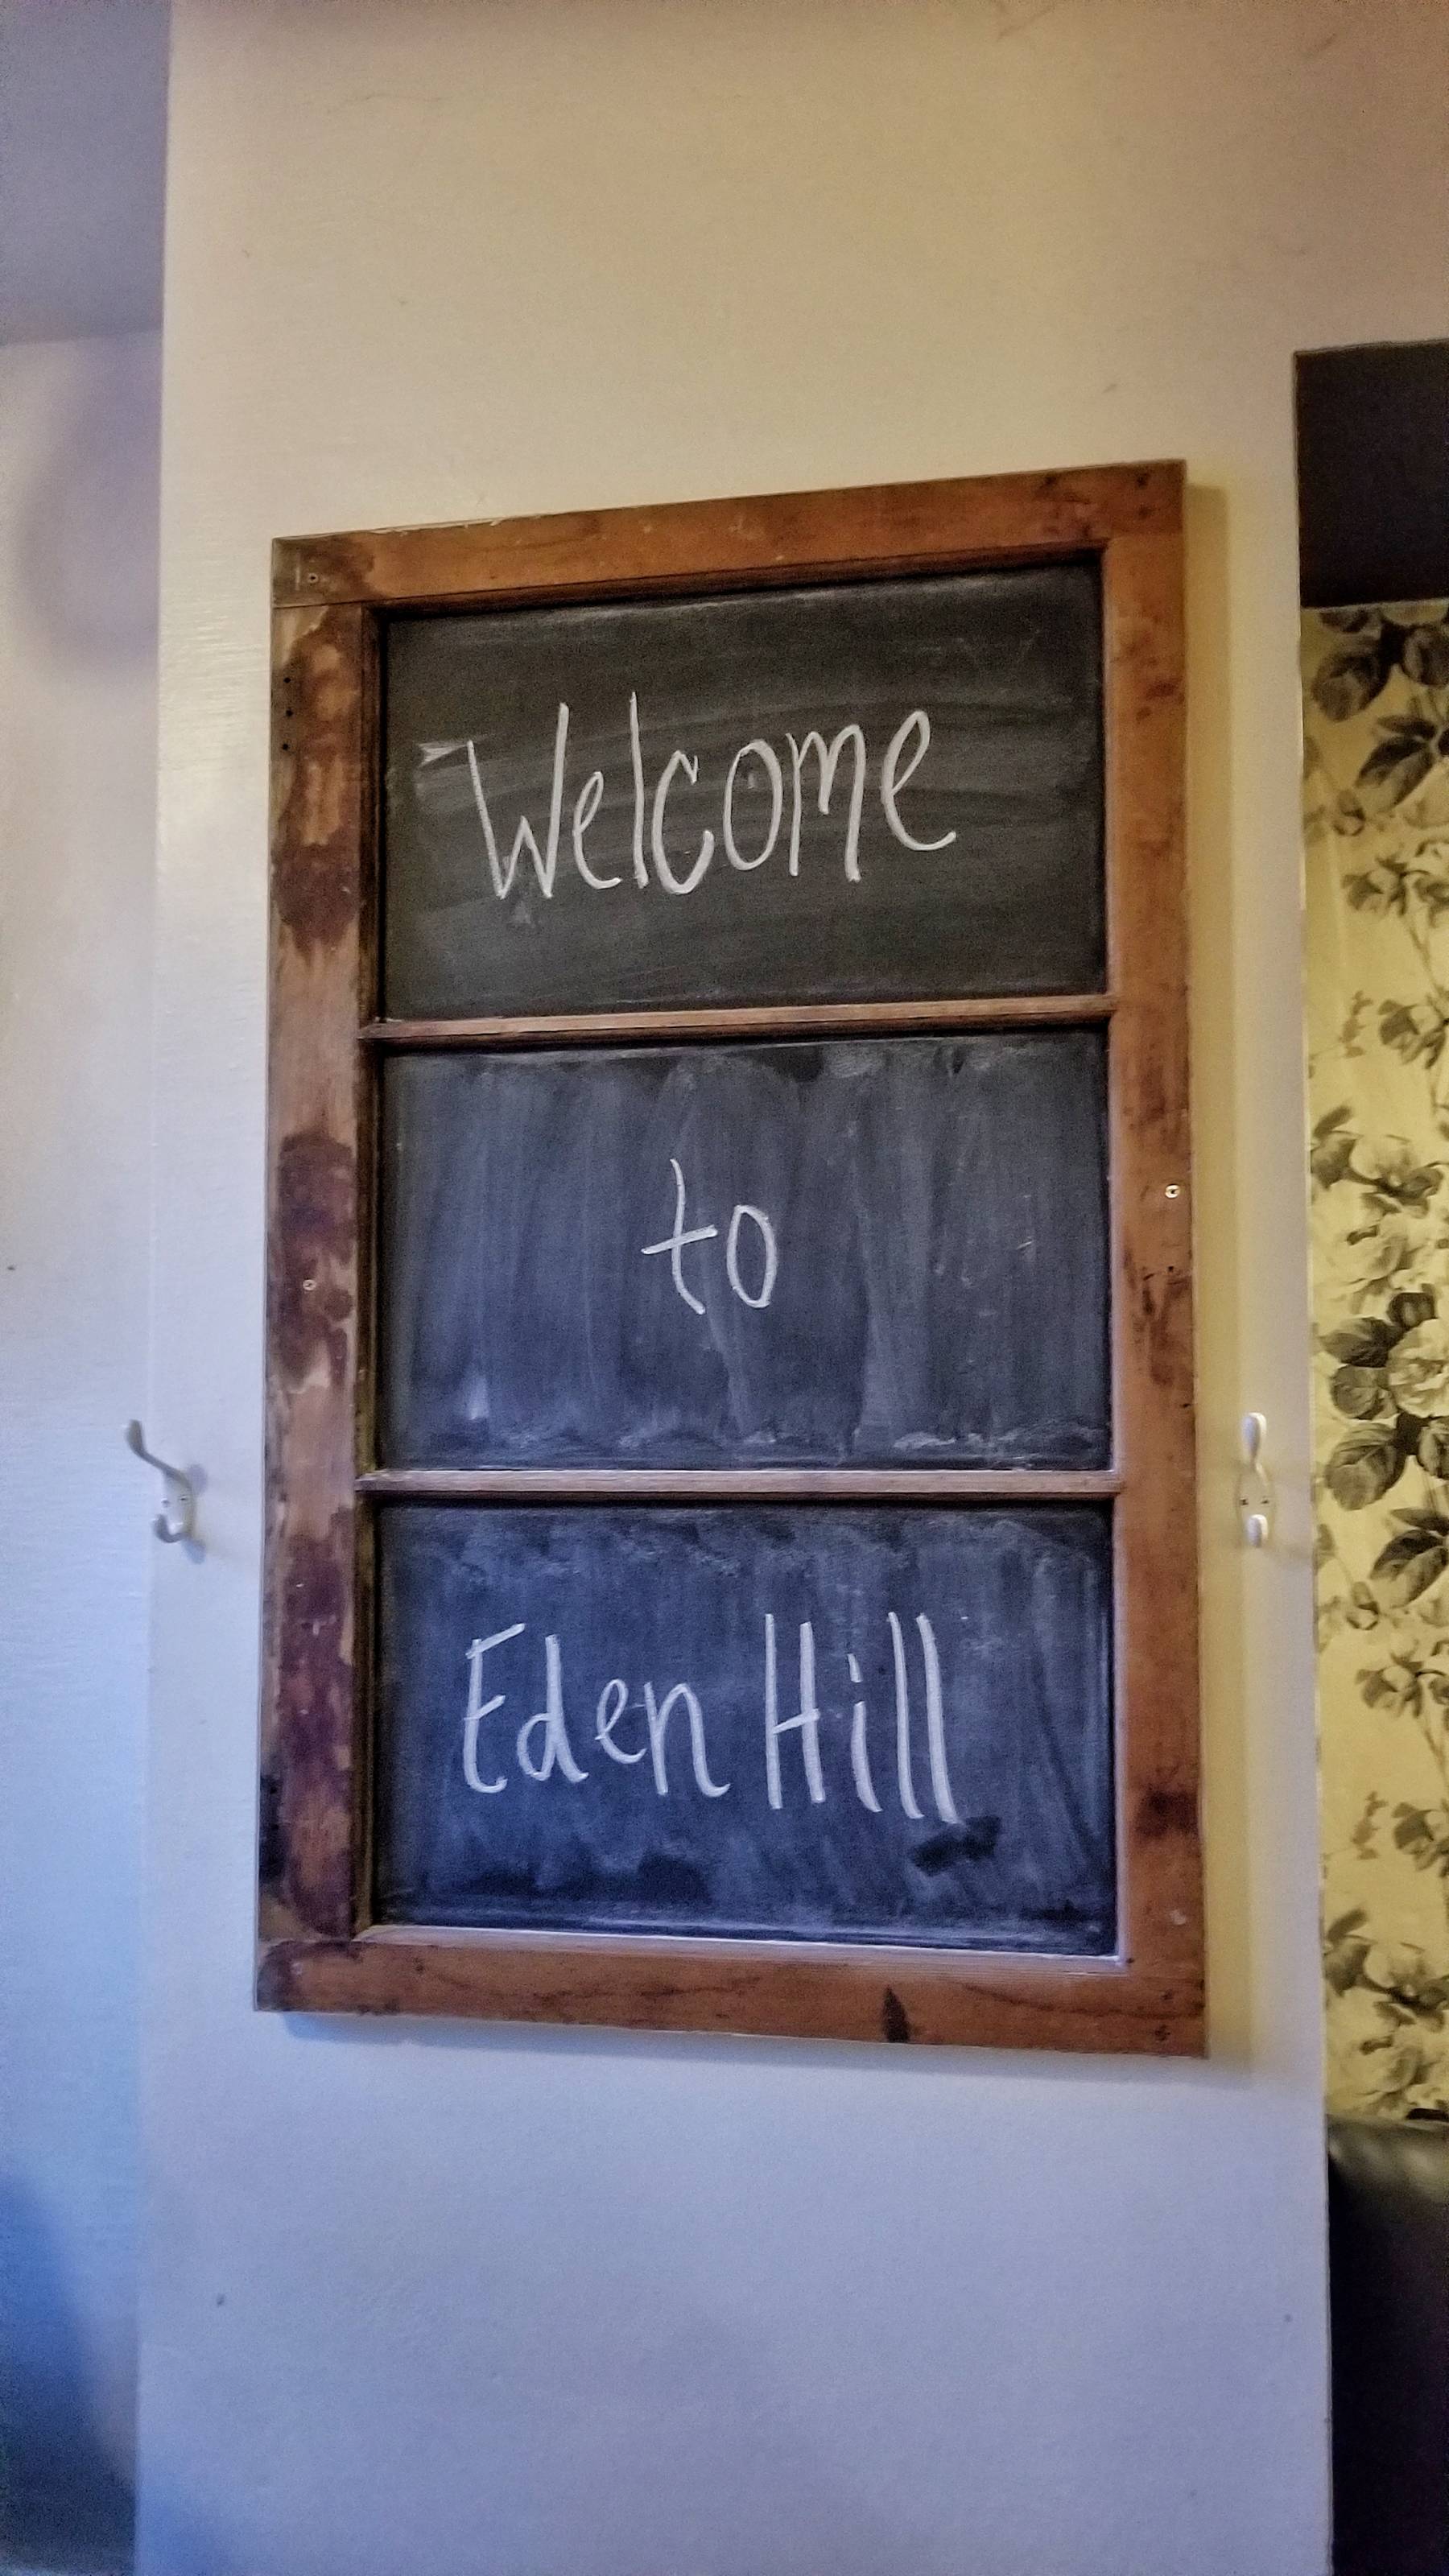 Welcome
to
Eden Hill